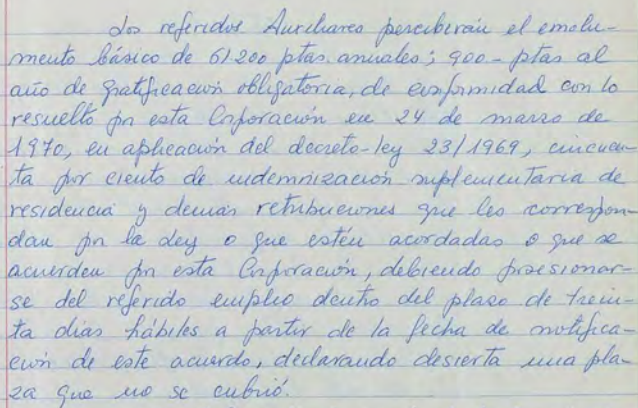 Los referidos Auxiliares percibirán el emolu-
mento básico de 61.200 ptas. anuales; 900.- ptas al
año de gratificación obligatoria, de conformidad con lo
resuelto por esta Corporación en 24 de marzo de
1.970, en aplicación del decreto-ley 23/1969, cincuen-
ta por ciento de indemnización suplementaria de
residencia y demás retribuciones que les correspon-
dan por la Ley o que estén acordadas o que se
acuerden por esta Corporación, debiendo posesionar-
se del referido empleo dentro del plazo de trein-
ta días hábiles a partir de la fecha de notifica-
ción de este acuerdo, declarando desierta una pla-
za que no se cubrió.